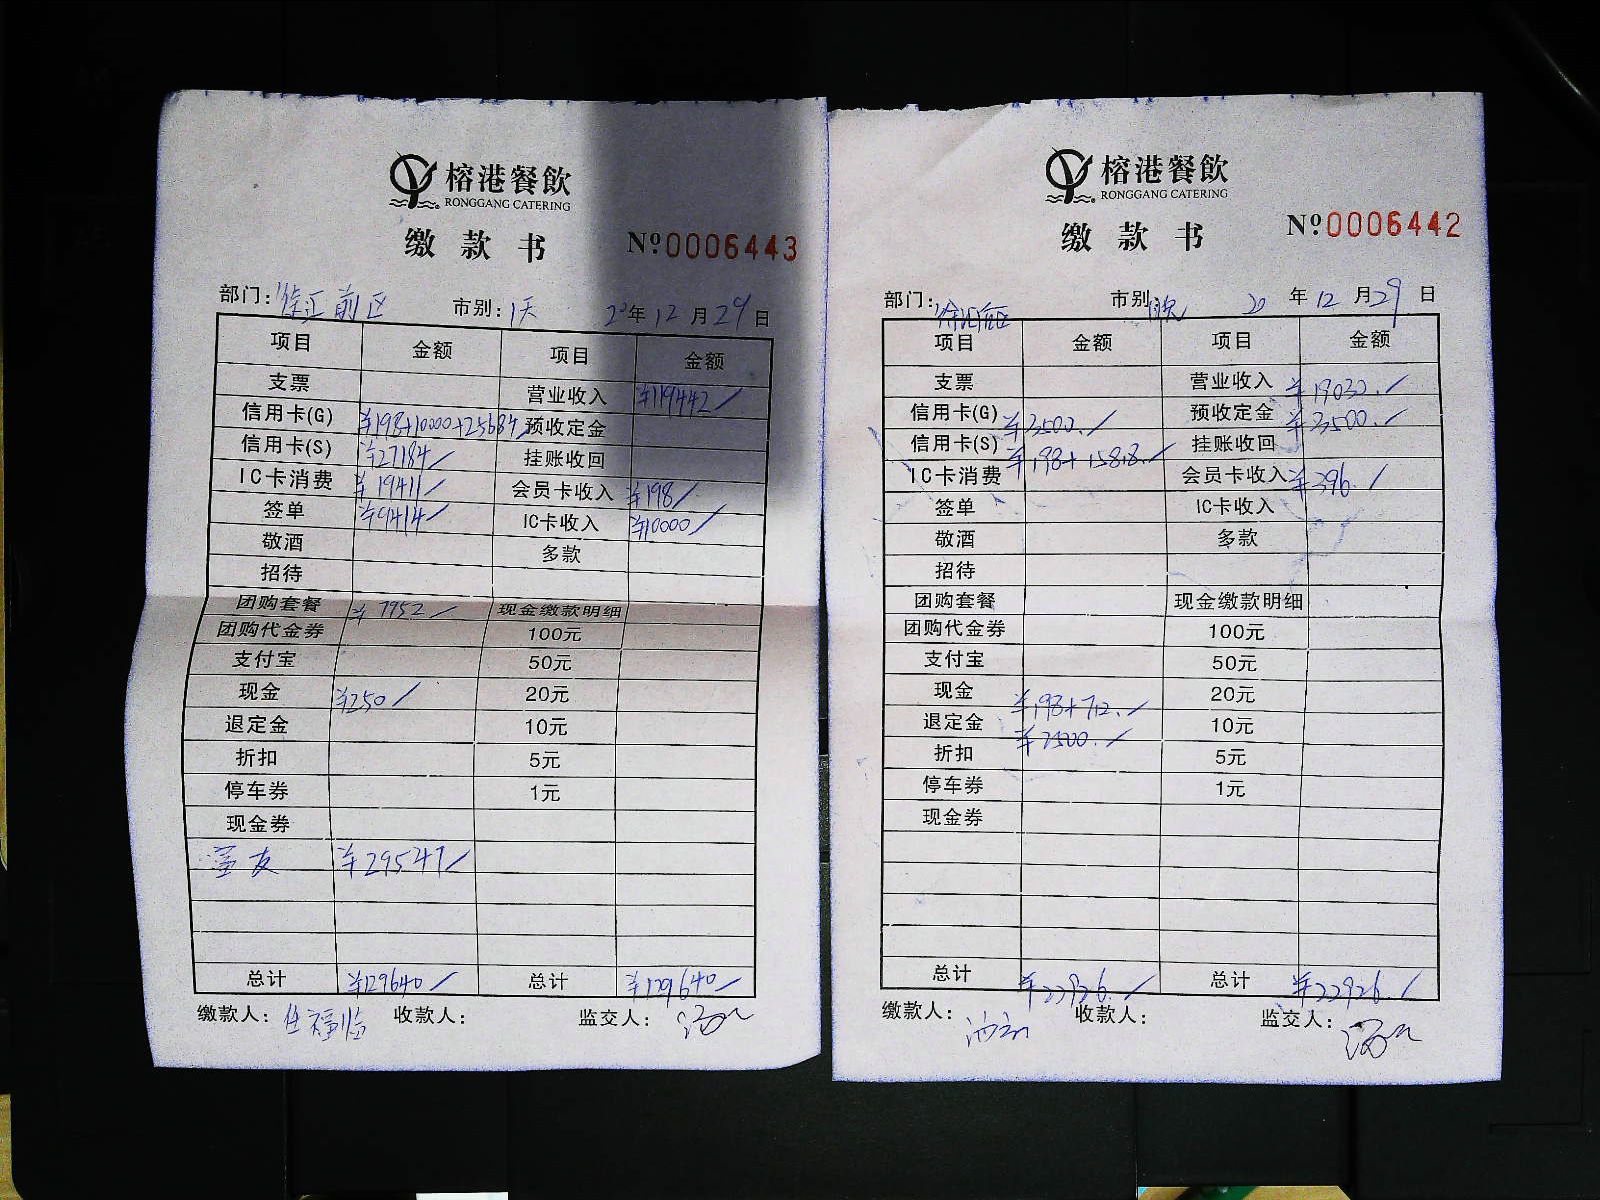 榕港餐飲
RONGGANG CATERING
缴款书
№0006443
部门: 徐汇前区 市别: 1天 20年12月29日
项目 金额 项目 金额
支票 营业收入 ¥119442
信用卡(G) ¥198+10000+25684 预收定金
信用卡(S) ¥27184 挂账收回
IC卡消费 ¥19411 会员卡收入 ¥198
签单 ¥9414 IC卡收入 ¥10000
敬酒 多款
招待
团购套餐 ¥7952 现金缴款明细
团购代金券 100元
支付宝 50元
现金 ¥250 20元
退定金 10元
折扣 5元
停车券 1元
现金券
¥29547
总计 ¥129640 总计 ¥129640
缴款人: 收款人: 监交人:
榕港餐飲
RONGGANG CATERING
缴款书
№0006442
部门: 市别: 20年12月29日
项目 金额 项目 金额
支票 营业收入 ¥19030.
信用卡(G) ¥3500. 预收定金 ¥3500.
信用卡(S) ¥198+15818. 挂账收回
IC卡消费 会员卡收入 ¥396.
签单 IC卡收入
敬酒 多款
招待
团购套餐 现金缴款明细
团购代金券 100元
支付宝 50元
现金 ¥198+712. 20元
退定金 ¥2500. 10元
折扣 5元
停车券 1元
现金券
总计 ¥22926. 总计 ¥22926.
缴款人: 收款人: 监交人: